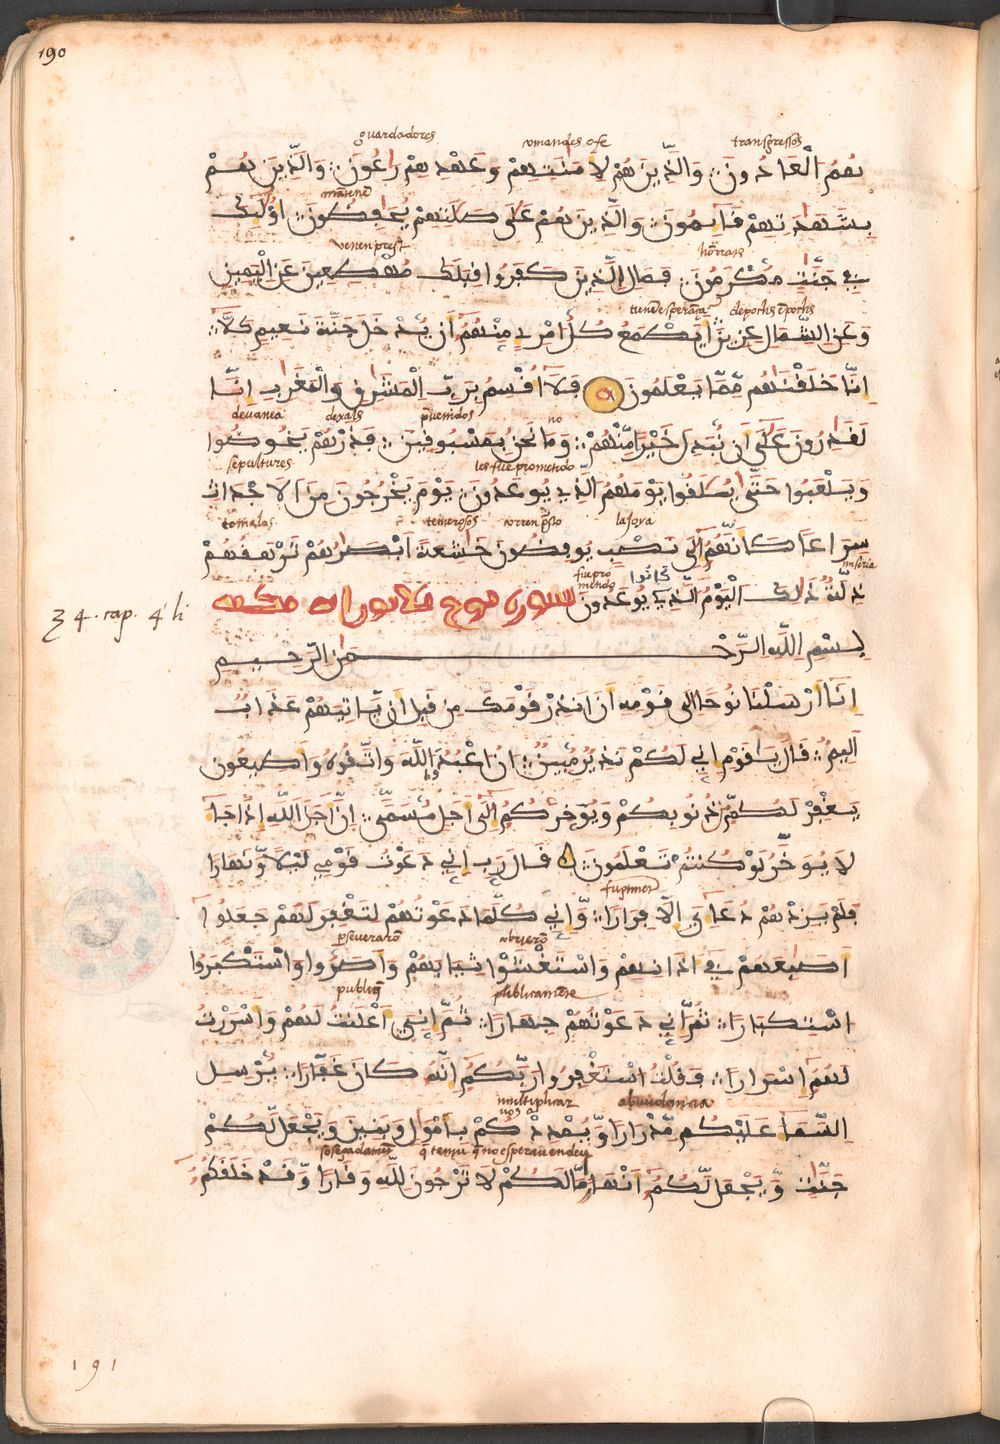 190
guardadores omandes ofe transgressos
هُمُ الْعَادُونَ وَالَّذِينَ هُمْ لِأَمَنَتِهِمْ وَعَهْدِهِمْ رَاعُونَ وَالَّذِينَ هُمْ
بِشَهَدَتِهِمْ قَائِمُونَ وَالَّذِينَ هُمْ عَلَى صَلَاتِهِمْ يُحَافِظُونَ أُوْلَئِكَ
venen prest honrats
فِي جَنَّتٍ مُّكْرَمُونَ فَمَالِ الَّذِينَ كَفَرُوا قِبَلَكَ مُهْطِعِينَ عَنِ الْيَمِينِ
tienen esperança depochs enpochs
وَعَنِ الشِّمَالِ عِزِينَ أَيَطْمَعُ كُلُّ امْرِئٍ مِّنْهُمُ أَن يُدْخَلَ جَنَّةَ نَعِيمٍ كَلَّا
إِنَّا خَلَقْنَهُم مِّمَّا يَعْلَمُونَ فَلَا أُقْسِمُ بِرَبِّ الْمَشَرِقِ وَالْمَغَرِبِ إِنَّا
devanea dexals puenidos no
لَقَدِرُونَ عَلَى أَن نُّبَدِّلَ خَيْرًا مِّنْهُمْ وَمَا نَحْنُ بِمَسْبُوقِينَ فَذَرْهُمْ يَخُوضُوا
sepultures les fue prometido
وَيَلْعَبُوا حَتَّى يُلَقُوا يَوْمَهُمُ الَّذِي يُوعَدُونَ يَوْمَ يَخْرُجُونَ مِنَ الْأَجْدَاثِ
temerosos
سِرَاعًا كَأَنَّهُمُ إِلَى نَصْبٍ يُوفِضُونَ خَشِعَةً أَبْصَرُهُمْ تَرْهَقُهُمْ
miseria
ذِلَّةٌ ذَلِكَ الْيَوْمُ الَّذِي كَانُوا يُوعَدُونَ
34. cap. 4 li
بِسْمِ اللَّهِ الرَّحْمَنِ الرَّحِيمِ
إِنَّا أَرْسَلْنَا نُوحًا إِلَى قَوْمِهِ أَنْ أَنذِرْ قَوْمَكَ مِن قَبْلِ أَن يَّاتِيَهُمْ عَذَابٌ
أَلِيمٌ قَالَ يَاقَوْمِ إِنِّي لَكُمْ نَذِيرٌ مُّبِينٌ أَنُ اعْبُدُوا اللَّهَ وَاتَّقُوهُ وَأَطِيعُونِ
يَغْفِرْ لَكُم مِّن ذُنُوبِكُمْ وَيُؤَخِّرْكُمُ إِلَى أَجَلٍ مُّسَمًّى إِنَّ أَجَلَ اللَّهِ إِذَا جَا
لَا يُوَخَّرُ لَوْ كُنتُمْ تَعْلَمُونَ قَالَ رَبِّ إِنِّي دَعَوْتُ قَوْمِي لَيْلًا وَّنَهَارًا
فَلَمْ يَزِدْهُمْ دُعَائِيَ إِلَّا فِرَارًا وَّإِنِّي كُلَّمَا دَعَوْتُهُمْ لِتَغْفِرَ لَهُمْ جَعَلُوا
pseveraron
أَصَبِعَهُمْ فِي أَذَانِهِمْ وَاسْتَغْشَوْا ثِيَابَهُمْ وَأَصَرُّوا وَاسْتَكْبَرُوا
publiq publicamente
اسْتِكْبَارًا ثُمَّ إِنِّي دَعَوْتُهُمْ جِهَارًا ثُمَّ إِنِّي أَعْلَنتُ لَهُمْ وَأَسْرَرْتُ
لَهُمُ إِسْرَارًا فَقُلْتُ اسْتَغْفِرُوا رَبَّكُمُ إِنَّهُ كَانَ غَفَّارًا يُرْسِلِ
multiplicar vos a abundancia
السَّمَا عَلَيْكُم مِّدْرَارًا وَيُمْدِدْكُمْ بِأَمْوَالٍ وَبَنِينَ وَيَجْعَل لَّكُمْ
جَنَّتٍ وَيَجْعَل لَّكُمُ أَنْهَارًا مَّا لَكُمْ لَا تَرْجُونَ لِلَّهِ وَقَارًا وَّقَدْ خَلَقَكُمُ
191